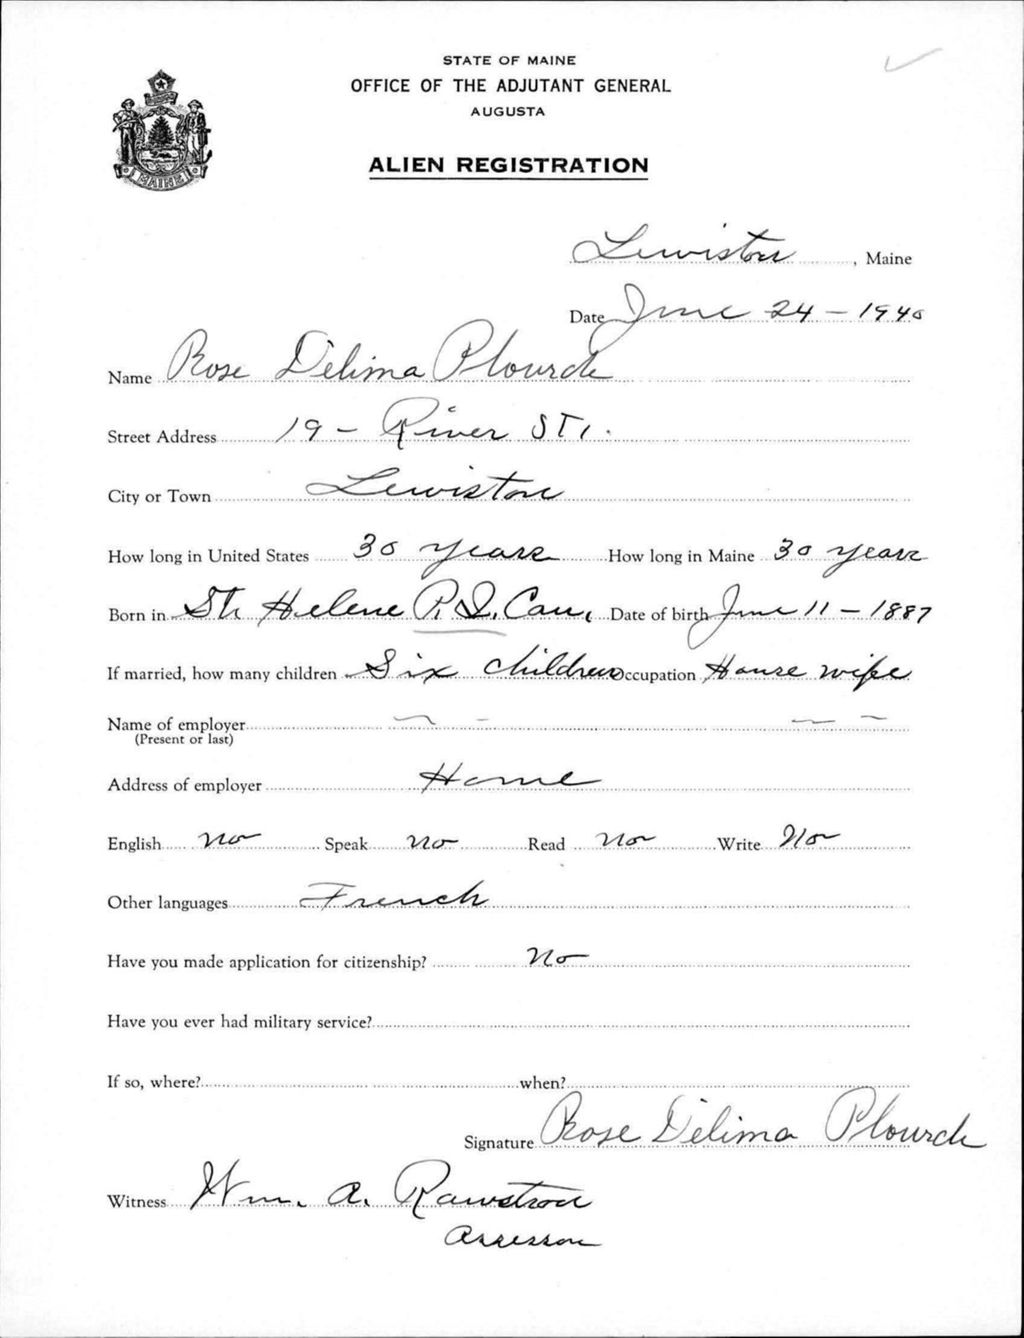 STATE OF MAINE
OFFICE OF THE ADJUTANT GENERAL
AUGUSTA
MAINE
ALIEN REGISTRATION
Lewiston, Maine
Date June 24 - 1940
Name Rose Délima Plourde
Street Address 19 - River ST.
City or Town Lewiston
How long in United States 30 years How long in Maine 30 years
Born in St Helene P.Q. Can, Date of birth June 11 - 1887
If married, how many children Six children Occupation House wife
Name of employer
(Present or last)
Address of employer Home
English No Speak No Read No Write No
Other languages French
Have you made application for citizenship? No
Have you ever had military service?
If so, where? when?
Signature Rose Délima Plourde
Witness Wm. A. Rawstron
Assessor